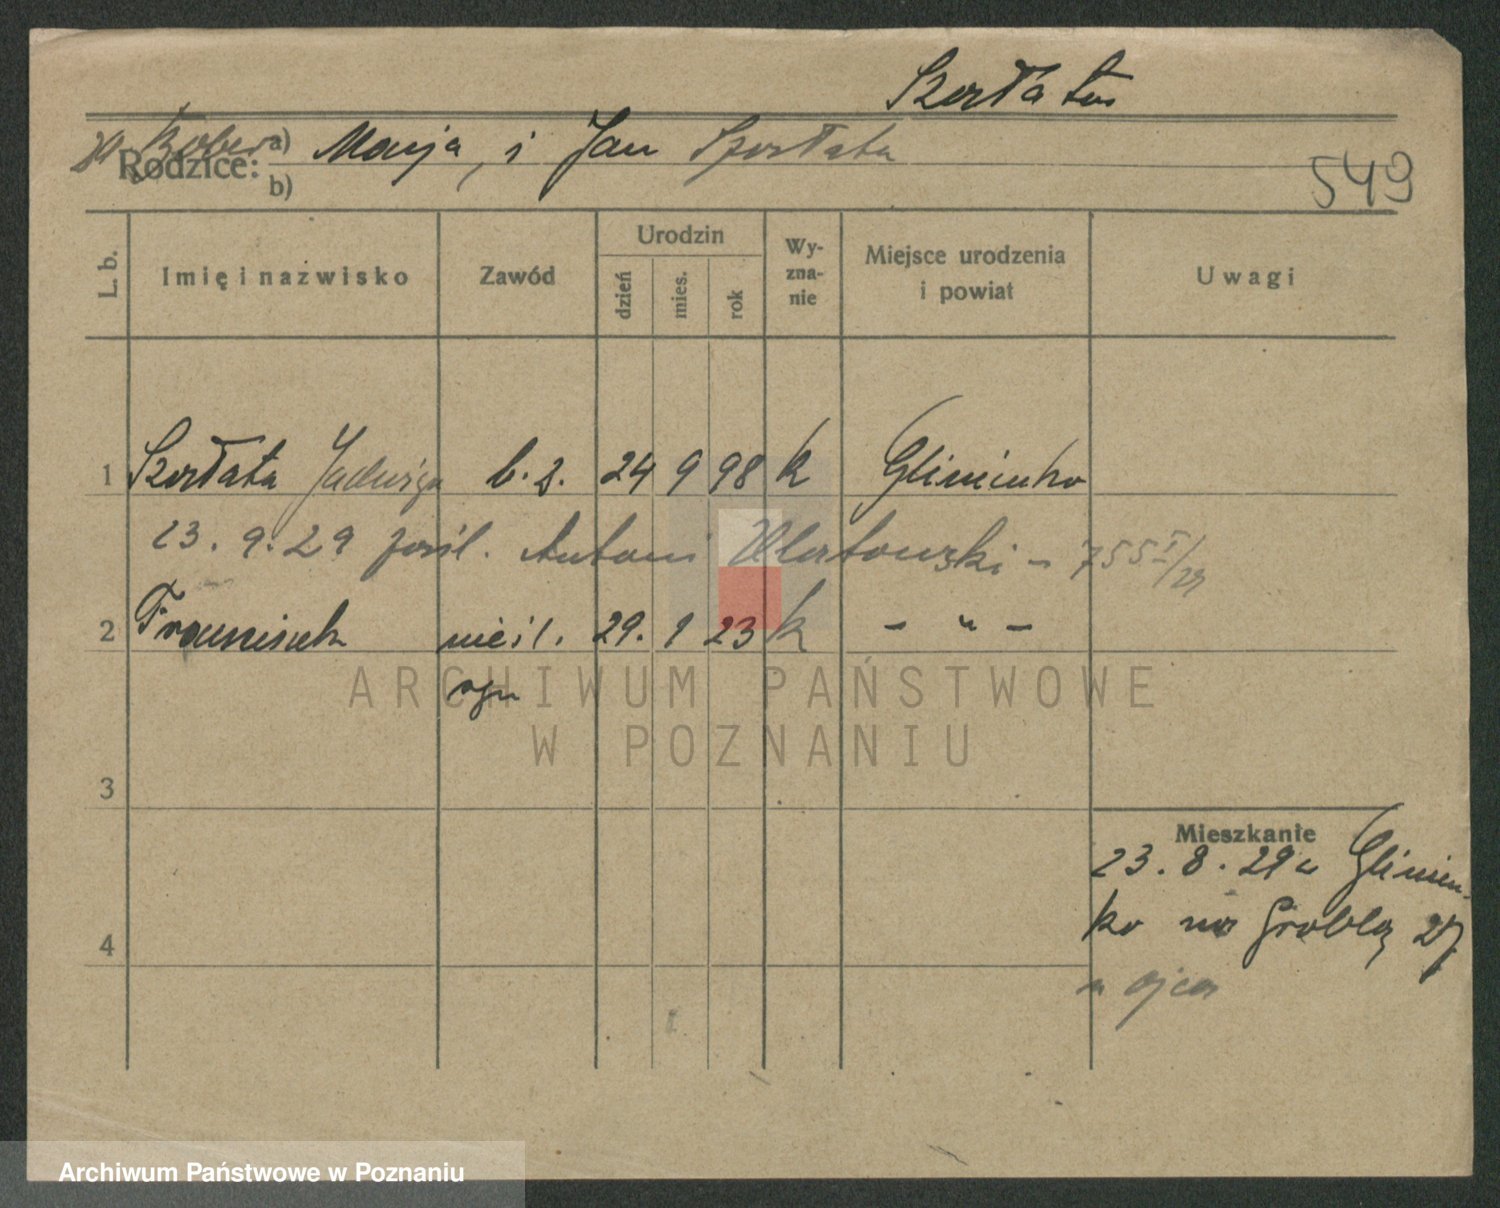 Szorłata
Rodzice: a) Marja, i Jan Szorłata
b)
549
L. b.
Imię i nazwisko
Zawód
Urodzin
dzień
mies.
rok
Wy-
zna-
nie
Miejsce urodzenia
i powiat
Uwagi
1 Szorłata Jadwiga b. z. 24 9 98 k Glinienko
23. 9. 29 pośl. Antoni - 755 I/29
2 Franciszek nieśl. 29. 1 23 k - " -
syn
3
Mieszkanie
23. 8. 29 z Glinien-
ko na Groblą 27
4
u ojca
ARCHIWUM PAŃSTWOWE
W POZNANIU
Archiwum Państwowe w Poznaniu